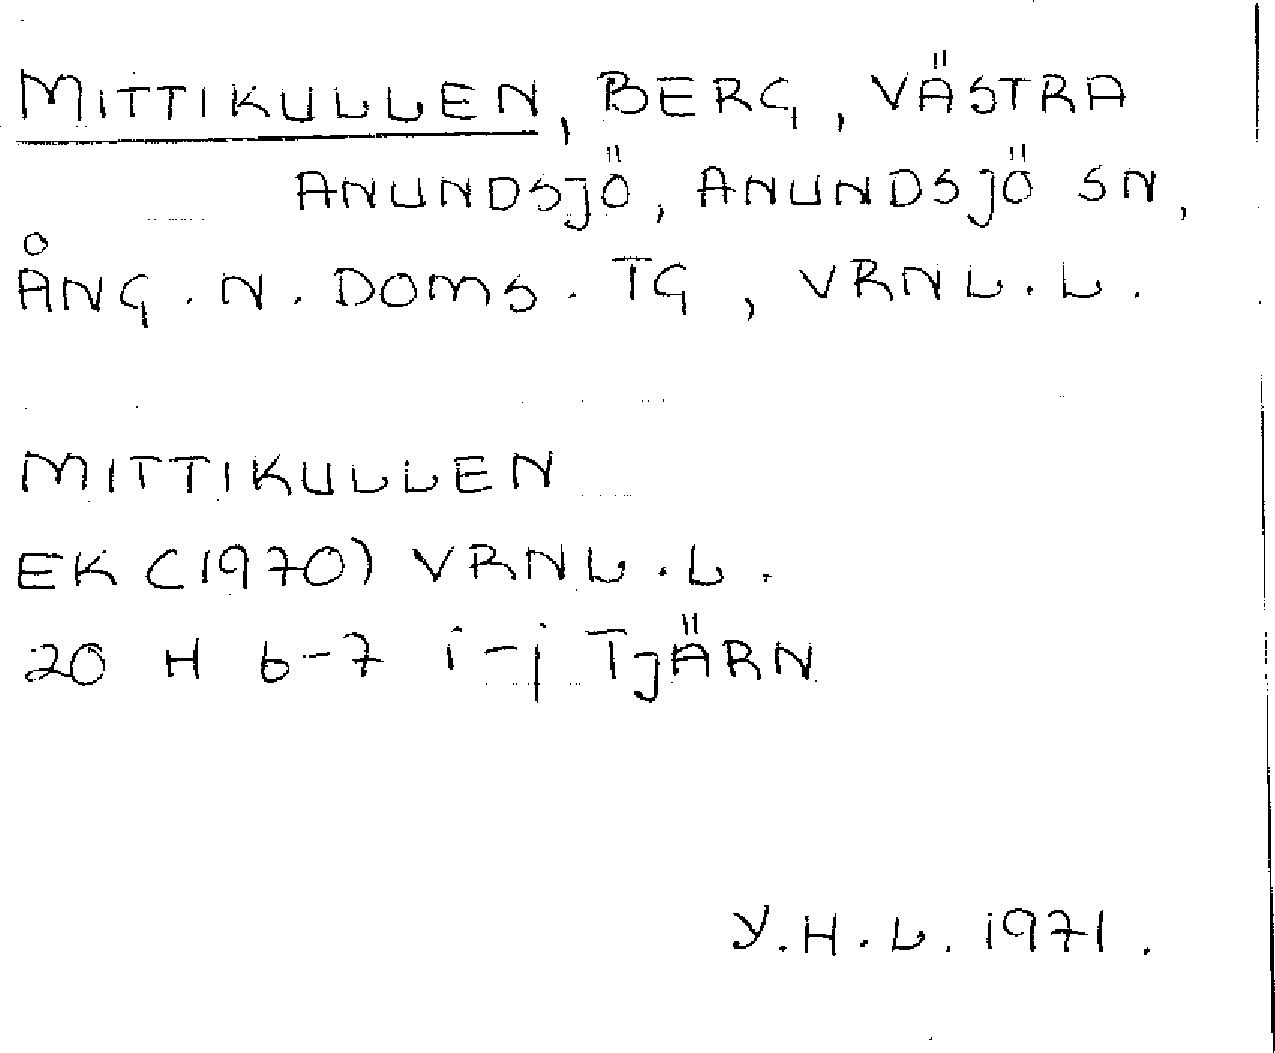 MITTIKULLEN, BERG, VÄSTRA
ANUNDSJÖ, ANUNDSJÖ SN,
ÅNG. N. DOMS. TG, VRNL.L.
MITTIKULLEN
EK (1970) VRNL.L.
20 H 6-7 i-j TJÄRN
Y.H.L. 1971.